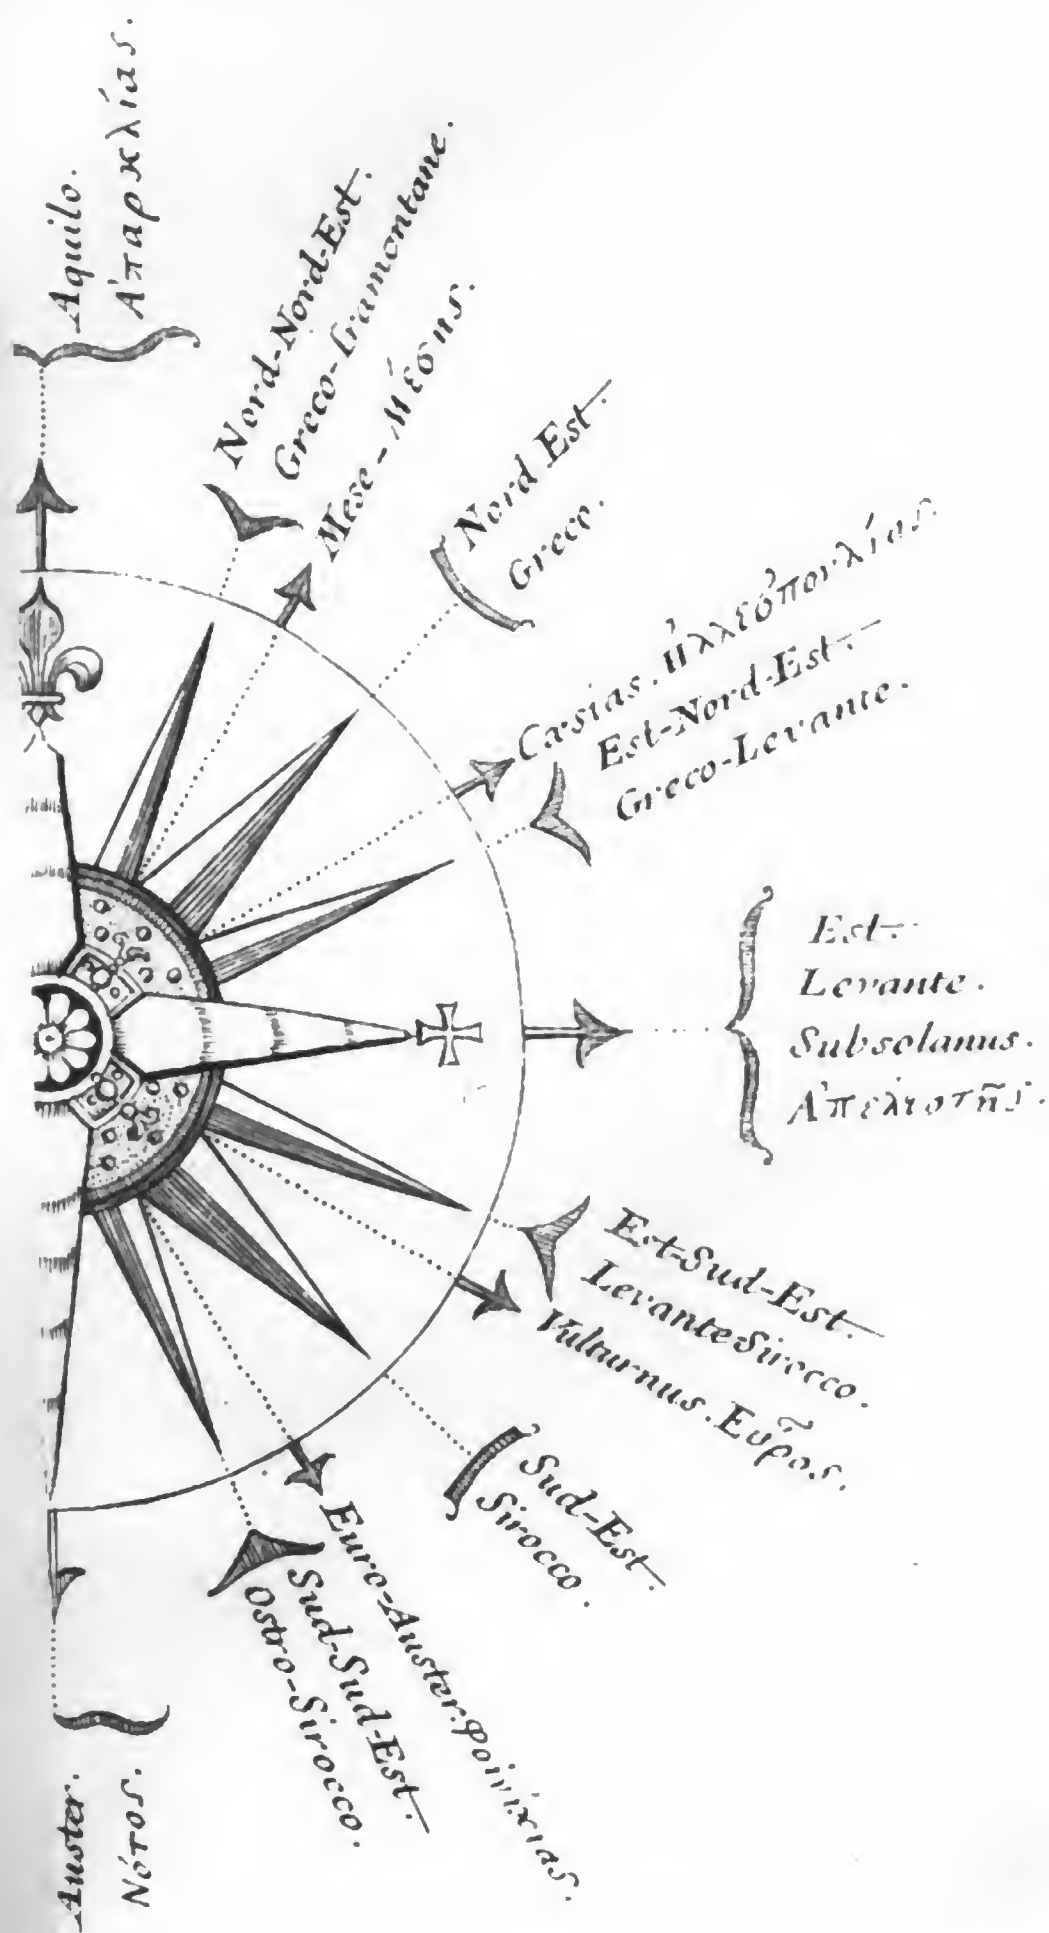 Aquilo.
Ἀπαρκλίας.
Nord-Nord-Est.
Greco-tramontane.
Mese-Μέσης.
Nord Est.
Greco.
Cæsias.
Est-Nord-Est.
Greco-Levante.
Est.
Levante.
Subsolanus.
Ἀπελιοτῆς.
Est-Sud-Est.
Levante Sirocco.
Vulturnus. Εὖρος.
Sud-Est.
Sirocco.
Euro-Auster. Φοινίκιας.
Sud-Sud-Est.
Ostro-Sirocco.
Auster.
Νότος.